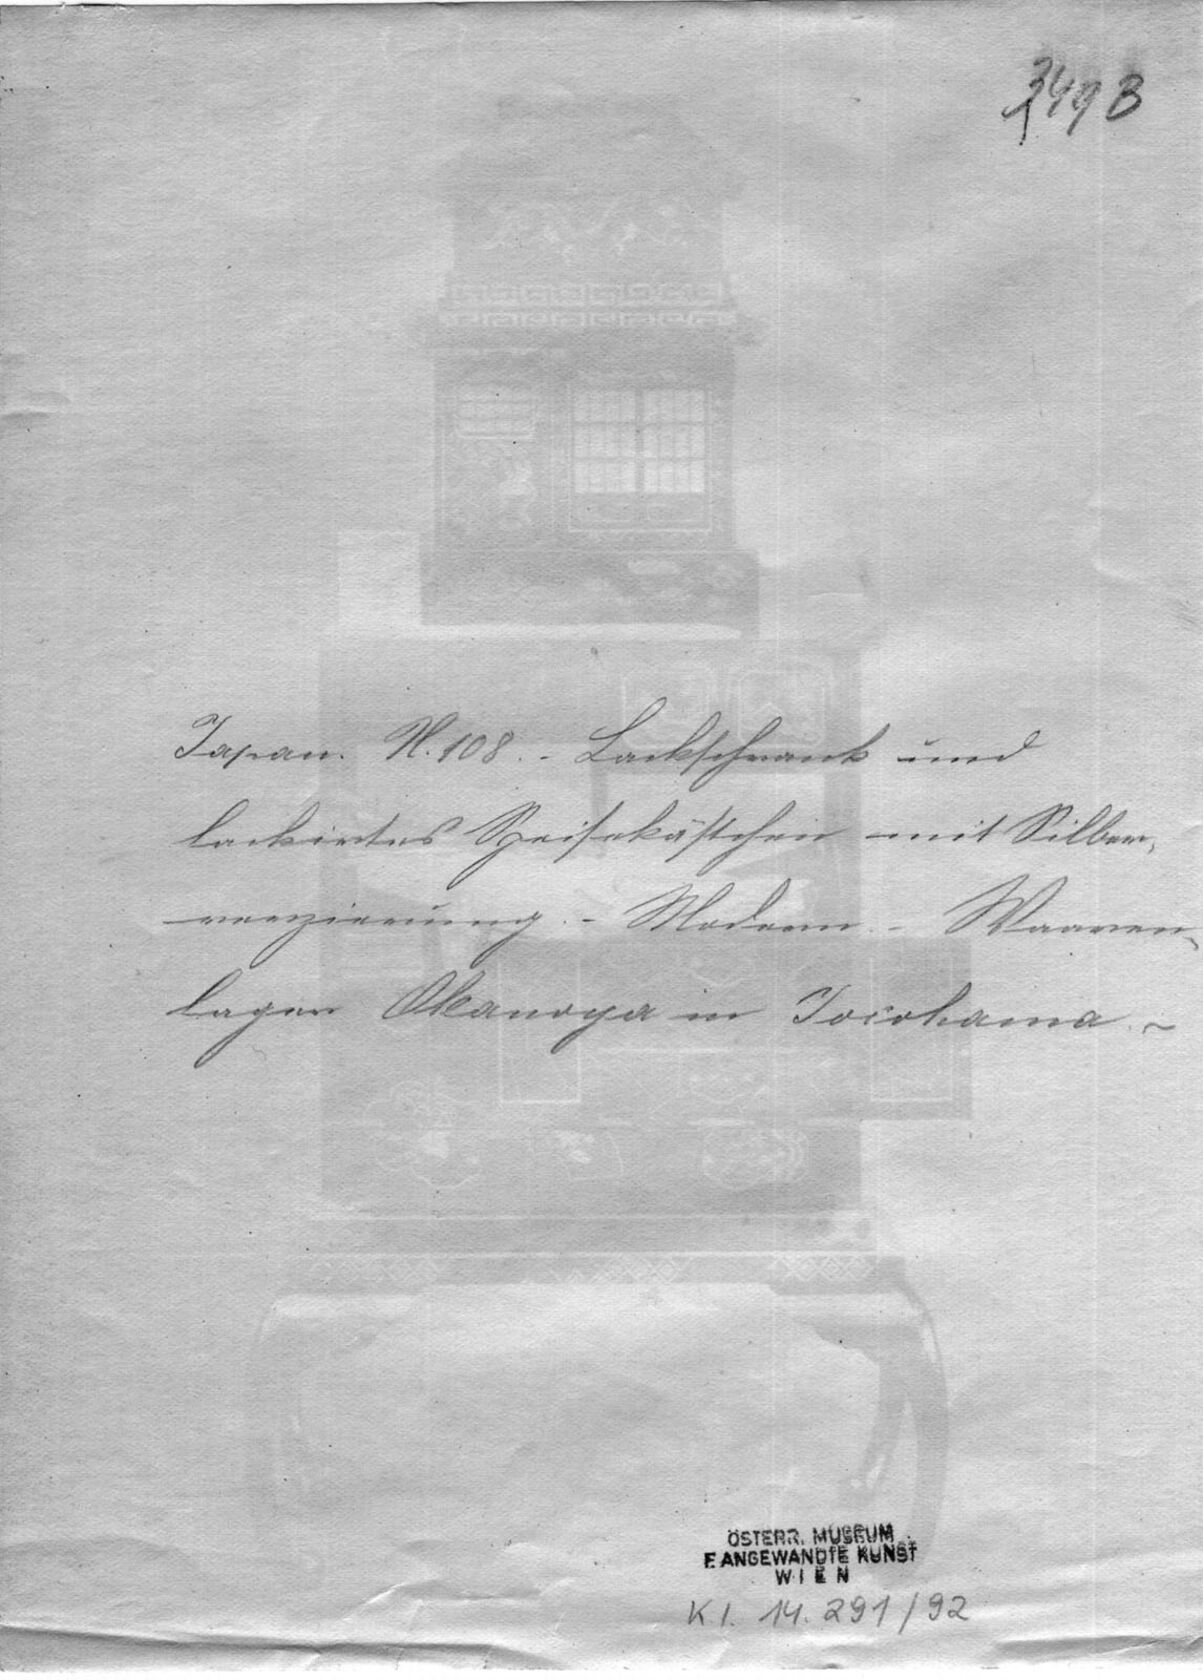 349 B
Japan. N. 108. - Lackschrank und
lackirtes Speisekästchen mit Silber-
verzierung. - Modern. - Waaren-
lager Okanoya in Jocohama. ~
ÖSTERR. MUSEUM
F. ANGEWANDTE KUNST
WIEN
K.I. 14.291/92